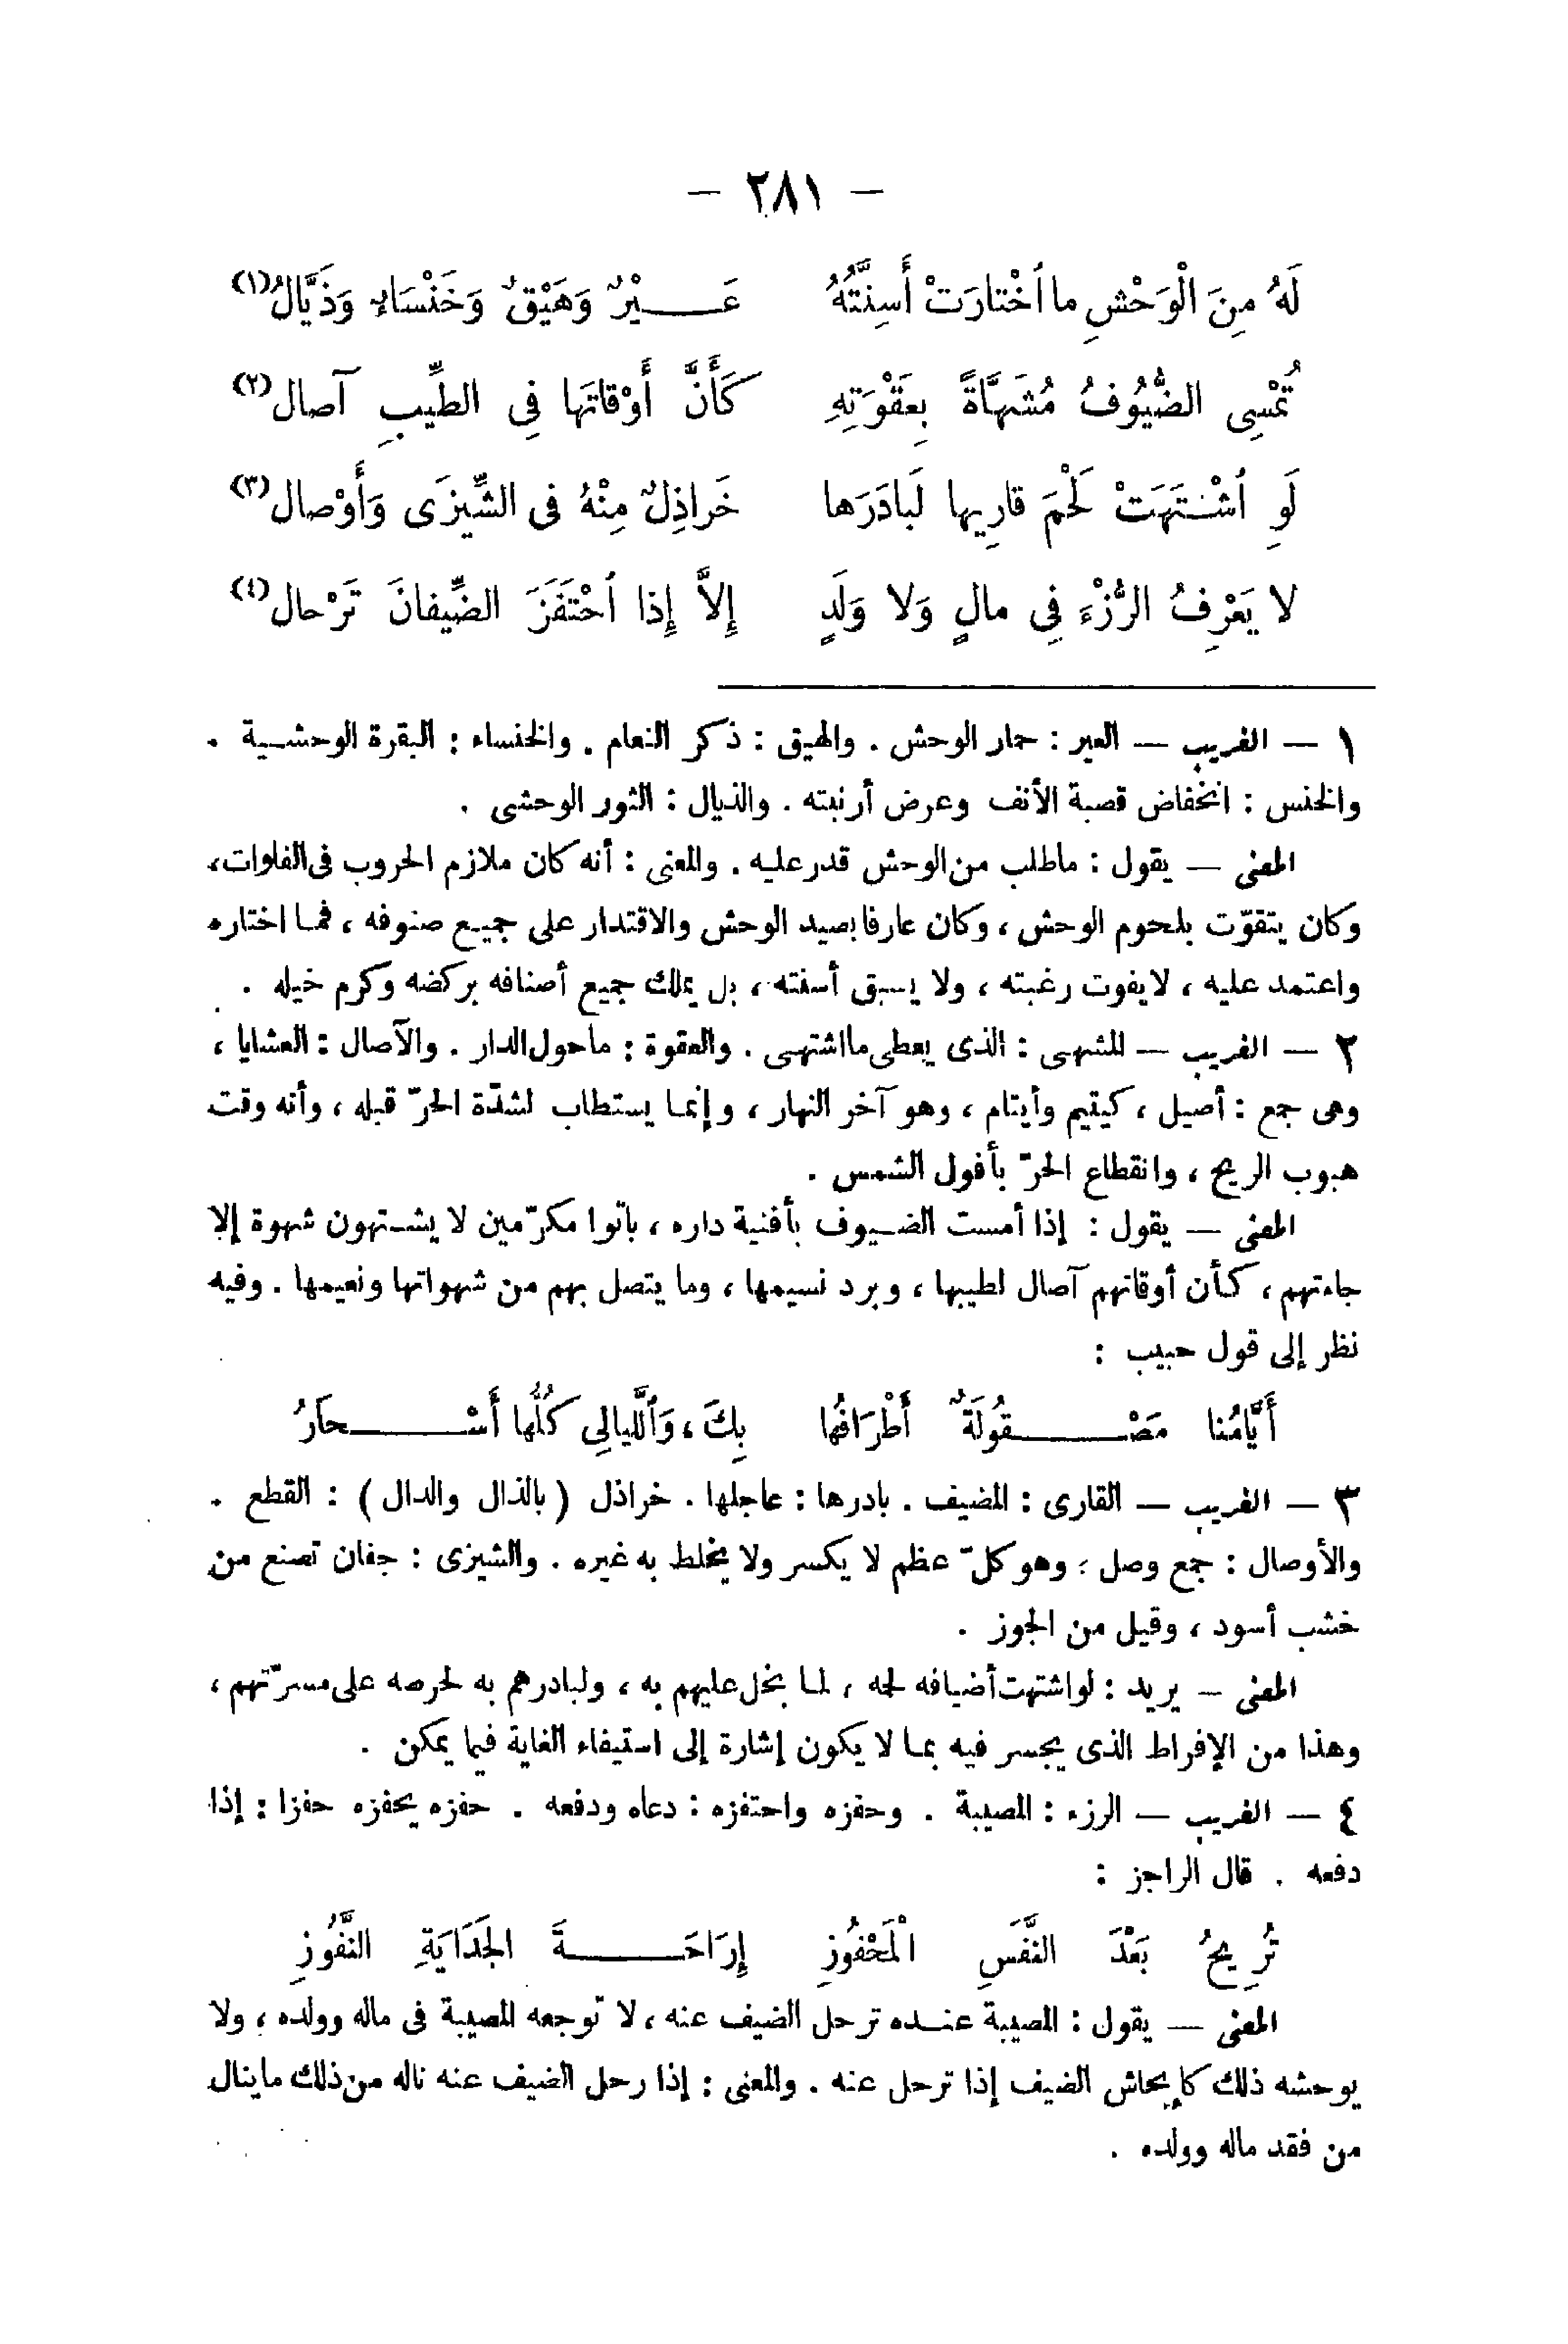 — ٢٨١ —
لَهُ مِنَ الْوَحْشِ ما اُخْتارَتْ أَسِنَّتُهُ عَـــيْرٌ وَهَيْقٌ وَخَنْسَاءٌ وَذَيَّالُ(١)
تُمْسِى الضُّيُوفُ مُشَهَّاةً بِعَقْوَتِهِ كَأَنَّ أَوْقاتَها فِى الطِّيبِ آصال(٢)
لَوِ اُشْتَهَتْ لَحْمَ قارِيها لَبادَرَها خَراذِلٌ مِنْهُ فى الشِّيزَى وَأَوْصال(٣)
لا يَعْرِفُ الرُّزْءَ فِى مالٍ وَلا وَلَدٍ إِلاَّ إِذا اُحْتَفَزَ الضِّيفانَ تَرْحال(٤)
١ — الغريب — العير : حمار الوحش . والهيق : ذكر النعام . والخنساء : البقرة الوحشـية .
والخنس : انخفاض قصبة الأنف وعرض أرنبته . والذيال : الثور الوحشى .
المعنى — يقول : ماطلب من الوحش قدر عليه . والمعنى : أنه كان ملازم الحروب فى الفلوات،
وكان يتقوّت بلحوم الوحش ، وكان عارفا بصيد الوحش والاقتدار على جميـع صنوفه ، فمـا اختاره
واعتمد عليه ، لايفوت رغبته ، ولا يسبق أسنته ، بل يملك جميع أصنافه بركضه وكرم خيله .
٢ — الغريب — المشهى : الذى يعطى مااشتهى . والعقوة : ماحول الدار . والآصال : العشايا ،
وهى جمع : أصيل ، كيتيم وأيتام ، وهو آخر النهار ، وإنمـا يستطاب لشدّة الحرّ قبله ، وأنه وقت
هبوب الريح ، وانقطاع الحرّ بأفول الشمس .
المعنى — يقول : إذا أمست الضـيوف بأفنية داره ، باتوا مكرّمين لا يشـتهون شهوة إلا
جاءتهم ، كأن أوقاتهم آصال لطيبها ، وبرد نسيمها ، وما يتصل بهم من شهواتها ونعيمها . وفيه
نظر إلى قول حبيب :
أَيَّامُنا مَصْـــقُولَةٌ أَطْرَافُها بِكَ ، وَاُللَّيالِى كُلُّها أَسْـــحارُ
٣ — الغريب — القارى : المضيف . بادرها : عاجلها . خراذل ( بالذال والدال ) : القطع .
والأوصال : جمع وصل : وهو كلّ عظم لا يكسر ولا يخلط به غيره . والشيزى : جفان تصنع من
خشب أسود ، وقيل من الجوز .
المعنى — يريد : لو اشتهت أضيافه لحمه ، لمـا بخل عليهم به ، ولبادرهم به لحرصه على مسرّتهم ،
وهذا من الإفراط الذى يجسر فيه بمـا لا يكون إشارة إلى استيفاء الغاية فيما يمكن .
٤ — الغريب — الرزء : المصيبة . وحفزه واحتفزه : دعاه ودفعه . حفزه يحفزه حفزا : إذا
دفعه . قال الراجز :
تُرِيحُ بَعْدَ النَّفَسِ الْمَحْفُوزِ إِرَاحَـــةَ الجَدَايَةِ النَّفُوزِ
المعنى — يقول : المصيبة عنـده ترحل الضيف عنه ، لا توجعه المصيبة فى ماله وولده ، ولا
يوحشه ذلك كإيحاش الضيف إذا ترحل عنه . والمعنى : إذا رحل الضيف عنه ناله من ذلك ماينال
من فقد ماله وولده .